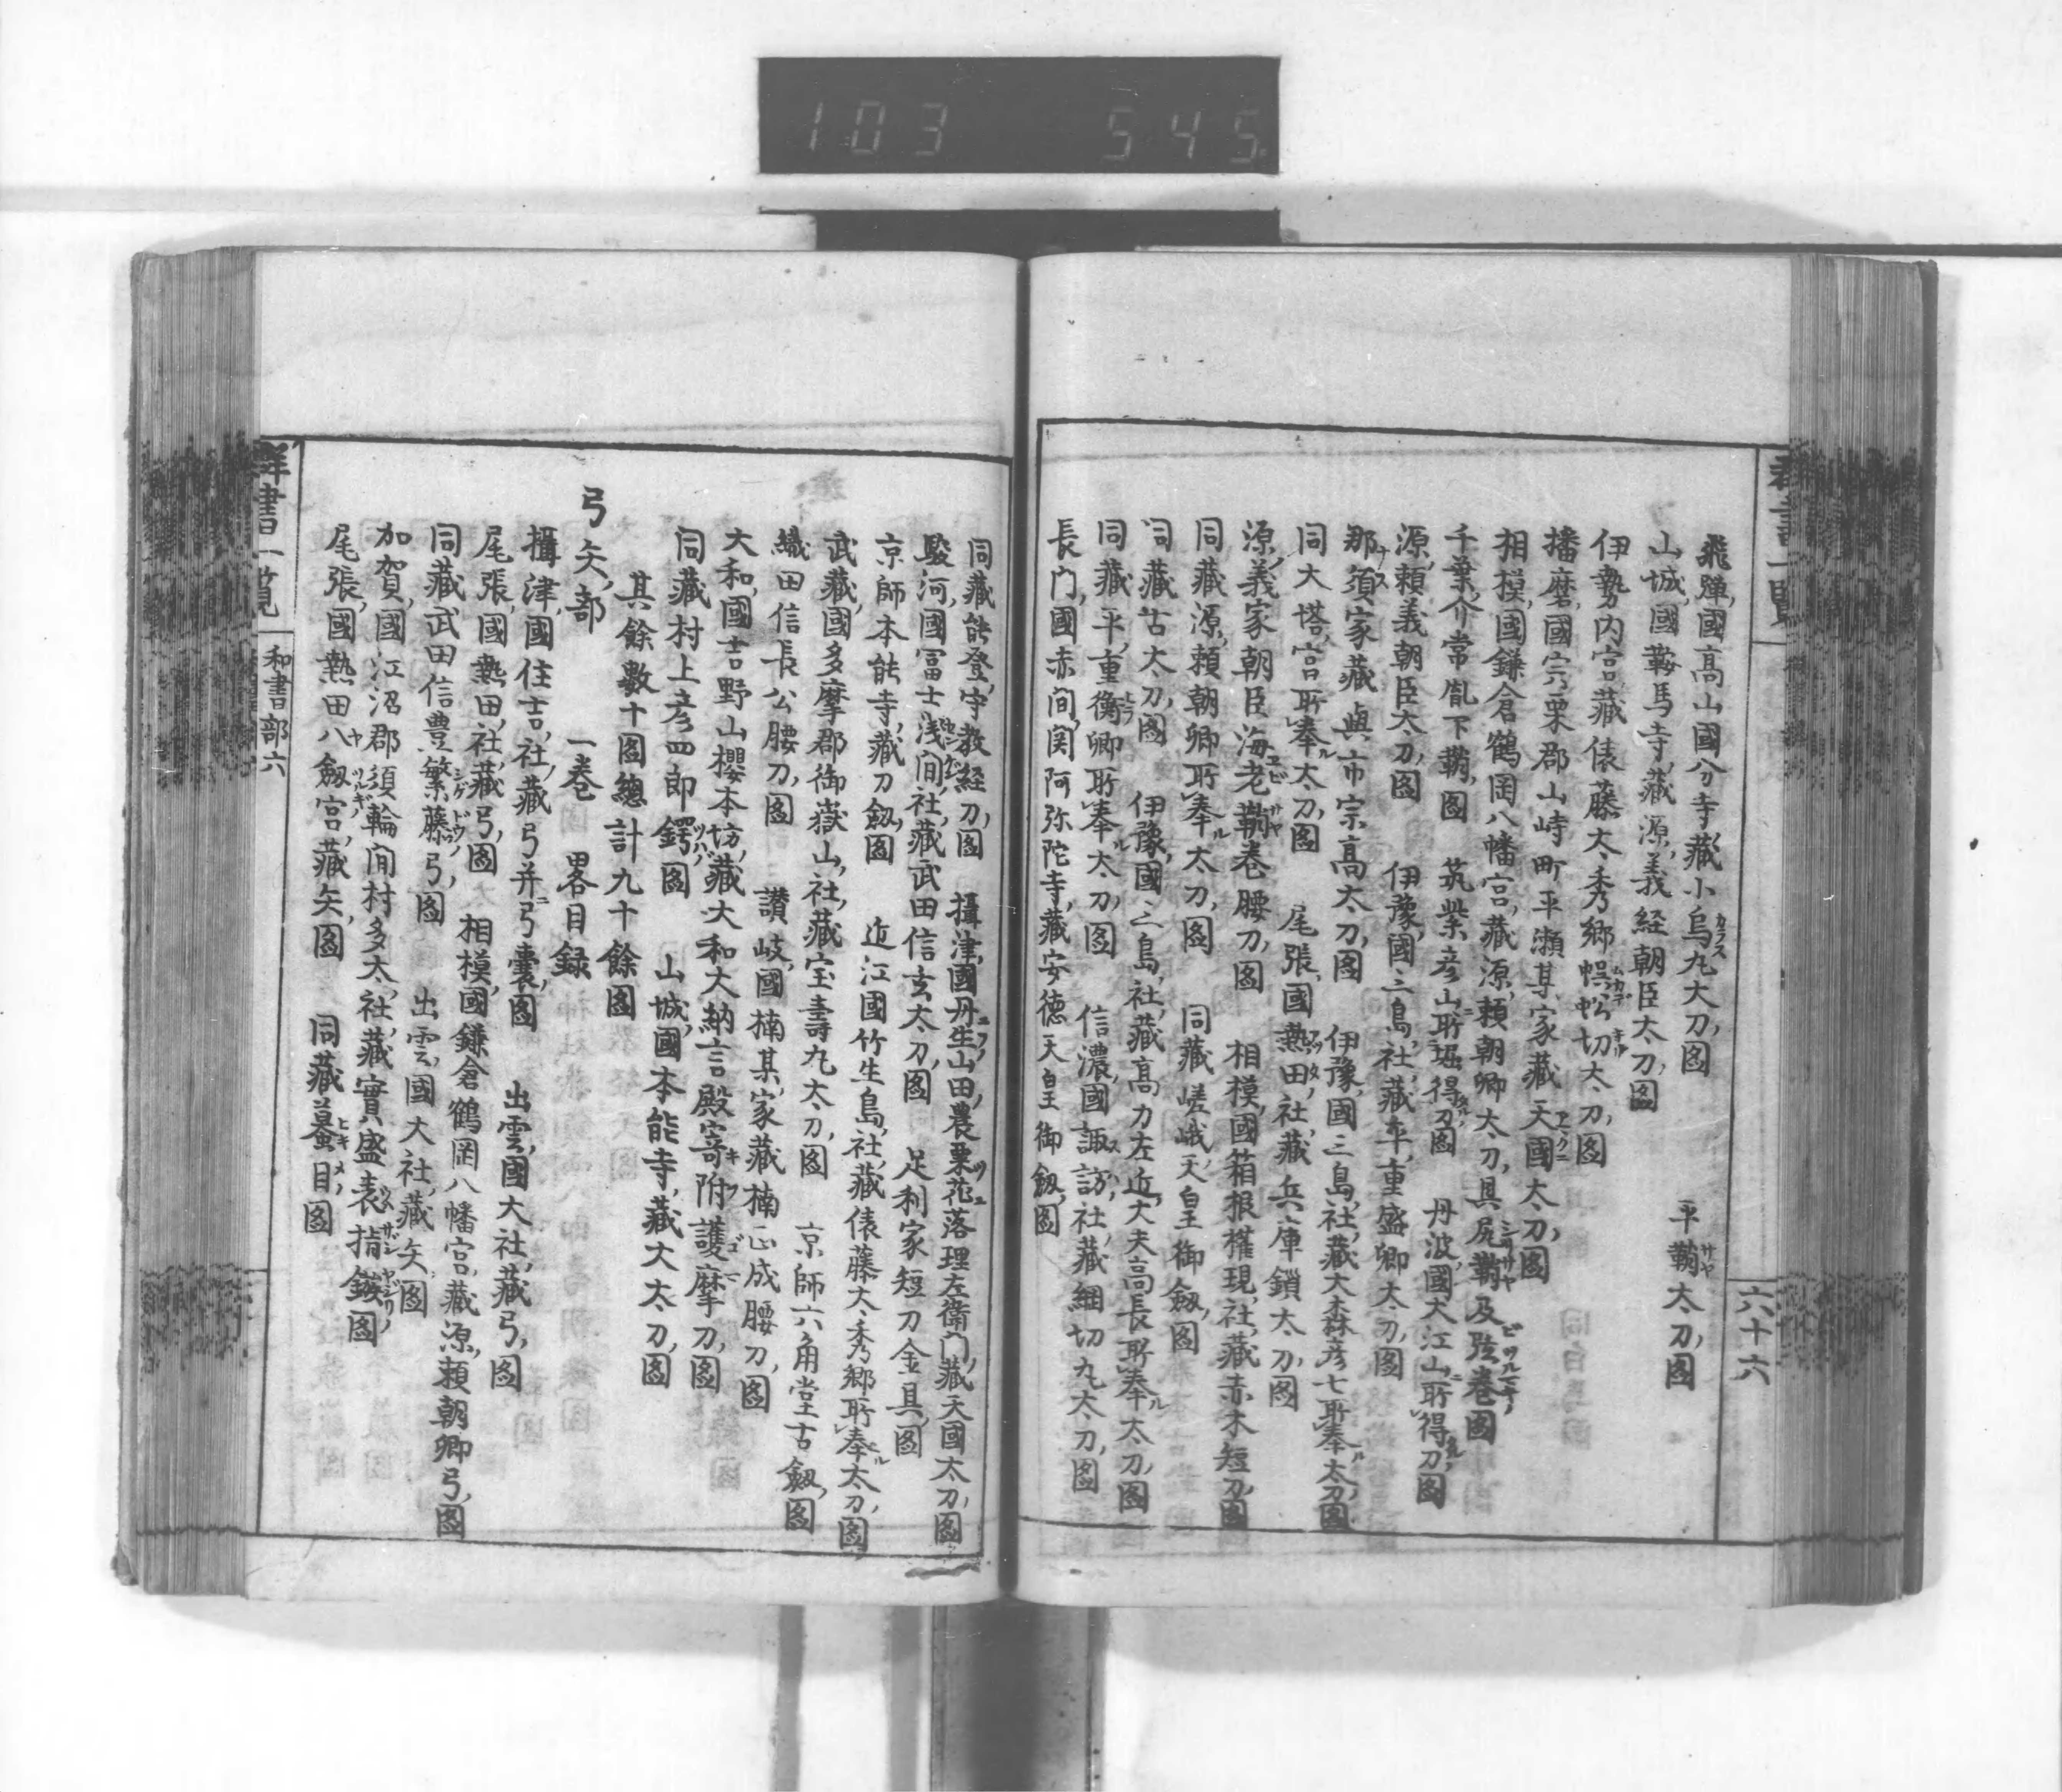 103 545
飛騨國高山國分寺藏小烏丸大刀圖　平鞘太刀圖
山城國鞍馬寺藏源義経朝臣太刀圖
伊勢内宮藏俵藤太秀郷蜈蚣切太刀圖
播磨國宍栗郡山崎町平瀬某家藏天國太刀圖
相模國鎌倉鶴岡八幡宮藏源頼朝卿太刀具尻鞘及弦巻圖
千葉介常胤下鞘圖　筑紫彦山所堀得刀圖　丹波國大江山所得刀圖
源頼義朝臣太刀圖　伊豫國三島社藏平重盛卿太刀圖
那須家藏與市宗高太刀圖　伊豫國三島社藏大森彦七所奉太刀圖
同大塔宮所奉太刀圖　尾張國熱田社藏兵庫鎖太刀圖
源義家朝臣海老鞘巻腰刀圖　相模國箱根權現社藏赤木短刀圖
同藏源頼朝卿所奉太刀圖　同藏嵯峨天皇御劔圖
同藏古太刀圖　伊豫國三島社藏高力左近大夫高長所奉太刀圖
同藏平重衡卿所奉太刀圖　信濃國諏訪社藏綑切丸太刀圖
長门國赤间関阿弥陀寺藏安德天皇御劔圖
六十六
同藏能登守教経刀圖　攝津國丹生山田農栗花落理左衛门藏天國太刀圖
駿河國冨士浅间社藏武田信玄太刀圖　足利家短刀金具圖
京師本能寺藏刀劔圖　近江國竹生島社藏俵藤太秀郷所奉太刀圖
武藏國多摩郡御嶽山社藏宝壽丸太刀圖　京師六角堂古劔圖
織田信長公腰刀圖　讃岐國楠某家藏楠正成腰刀圖
大和國吉野山櫻本坊藏大和大納言殿寄附護摩刀圖
同藏村上彦四郎鍔圖　山城國本能寺藏大太刀圖
其餘數十圖總計九十餘圖
弓矢部　一巻　畧目録
攝津國住吉社藏弓并弓嚢圖　出雲國大社藏弓圖
尾張國熱田社藏弓圖　相模國鎌倉鶴岡八幡宮藏源頼朝卿弓圖
同藏武田信豊繁藤弓圖　出雲國大社藏矢圖
加賀國江沼郡須輪间村多太社藏實盛表指鏃圖
尾張國熱田八劔宮藏矢圖　同藏蟇目圖
群書一覧　和書部六